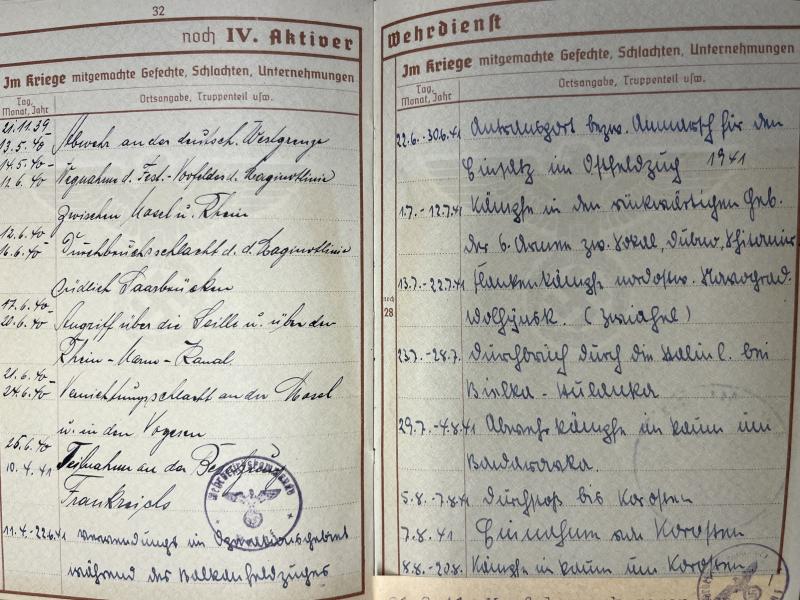 32
noch IV. Aktiver
Im Kriege mitgemachte Gefechte, Schlachten, Unternehmungen
Tag, Monat, Jahr
Ortsangabe, Truppenteil usw.
21.11.39
13.5.40 Abwehr an der deutsch. Westgrenze
14.5.40-
12.6.40 Wegnahme d. Fest.-Vorfeldes d. Maginotlinie
zwischen Mosel u. Rhein
12.6.40
16.6.40- Durchbruchsschlacht d. d. Maginotlinie
südlich Saarbrücken
17.6.40-
20.6.40- Angriff über die Seille u. über den
Rhein-Marne-Kanal.
21.6.40-
24.6.40- Vernichtungsschlacht an der Mosel
u. in den Vogesen
25.6.40
10.4.41 Teilnahm an der
Frankreichs
11.4.-22.6.41 Verwendungs im Operationsgebiet
während des Balkanfeldzuges
Wehrdienst
Im Kriege mitgemachte Gefechte, Schlachten, Unternehmungen
Tag, Monat, Jahr
Ortsangabe, Truppenteil usw.
noch 28
22.6.-30.6.41 Antransport bezw. Anmarsch für den
Einsatz im Ostfeldzug 1941
1.7.-12.7.41 Kämpfe in den rückwärtigen Geb.
der 6. Armee zw. Sokal, Dubno,
13.7.-22.7.41 Flankenkämpfe nordostw. Nawograd-
Wolhynsk. (Zwiahel)
23.7.-28.7. Durchbruch durch die Stalin L. bei
Bielka-Hulanka
29.7.-4.8.41 Abwehrkämpfe im Raum um
5.8.-7.8.41 Durchstoß bis Korosten
7.8.41 Einnahme von Korosten
8.8.-20.8. Kämpfe im Raum um Korosten